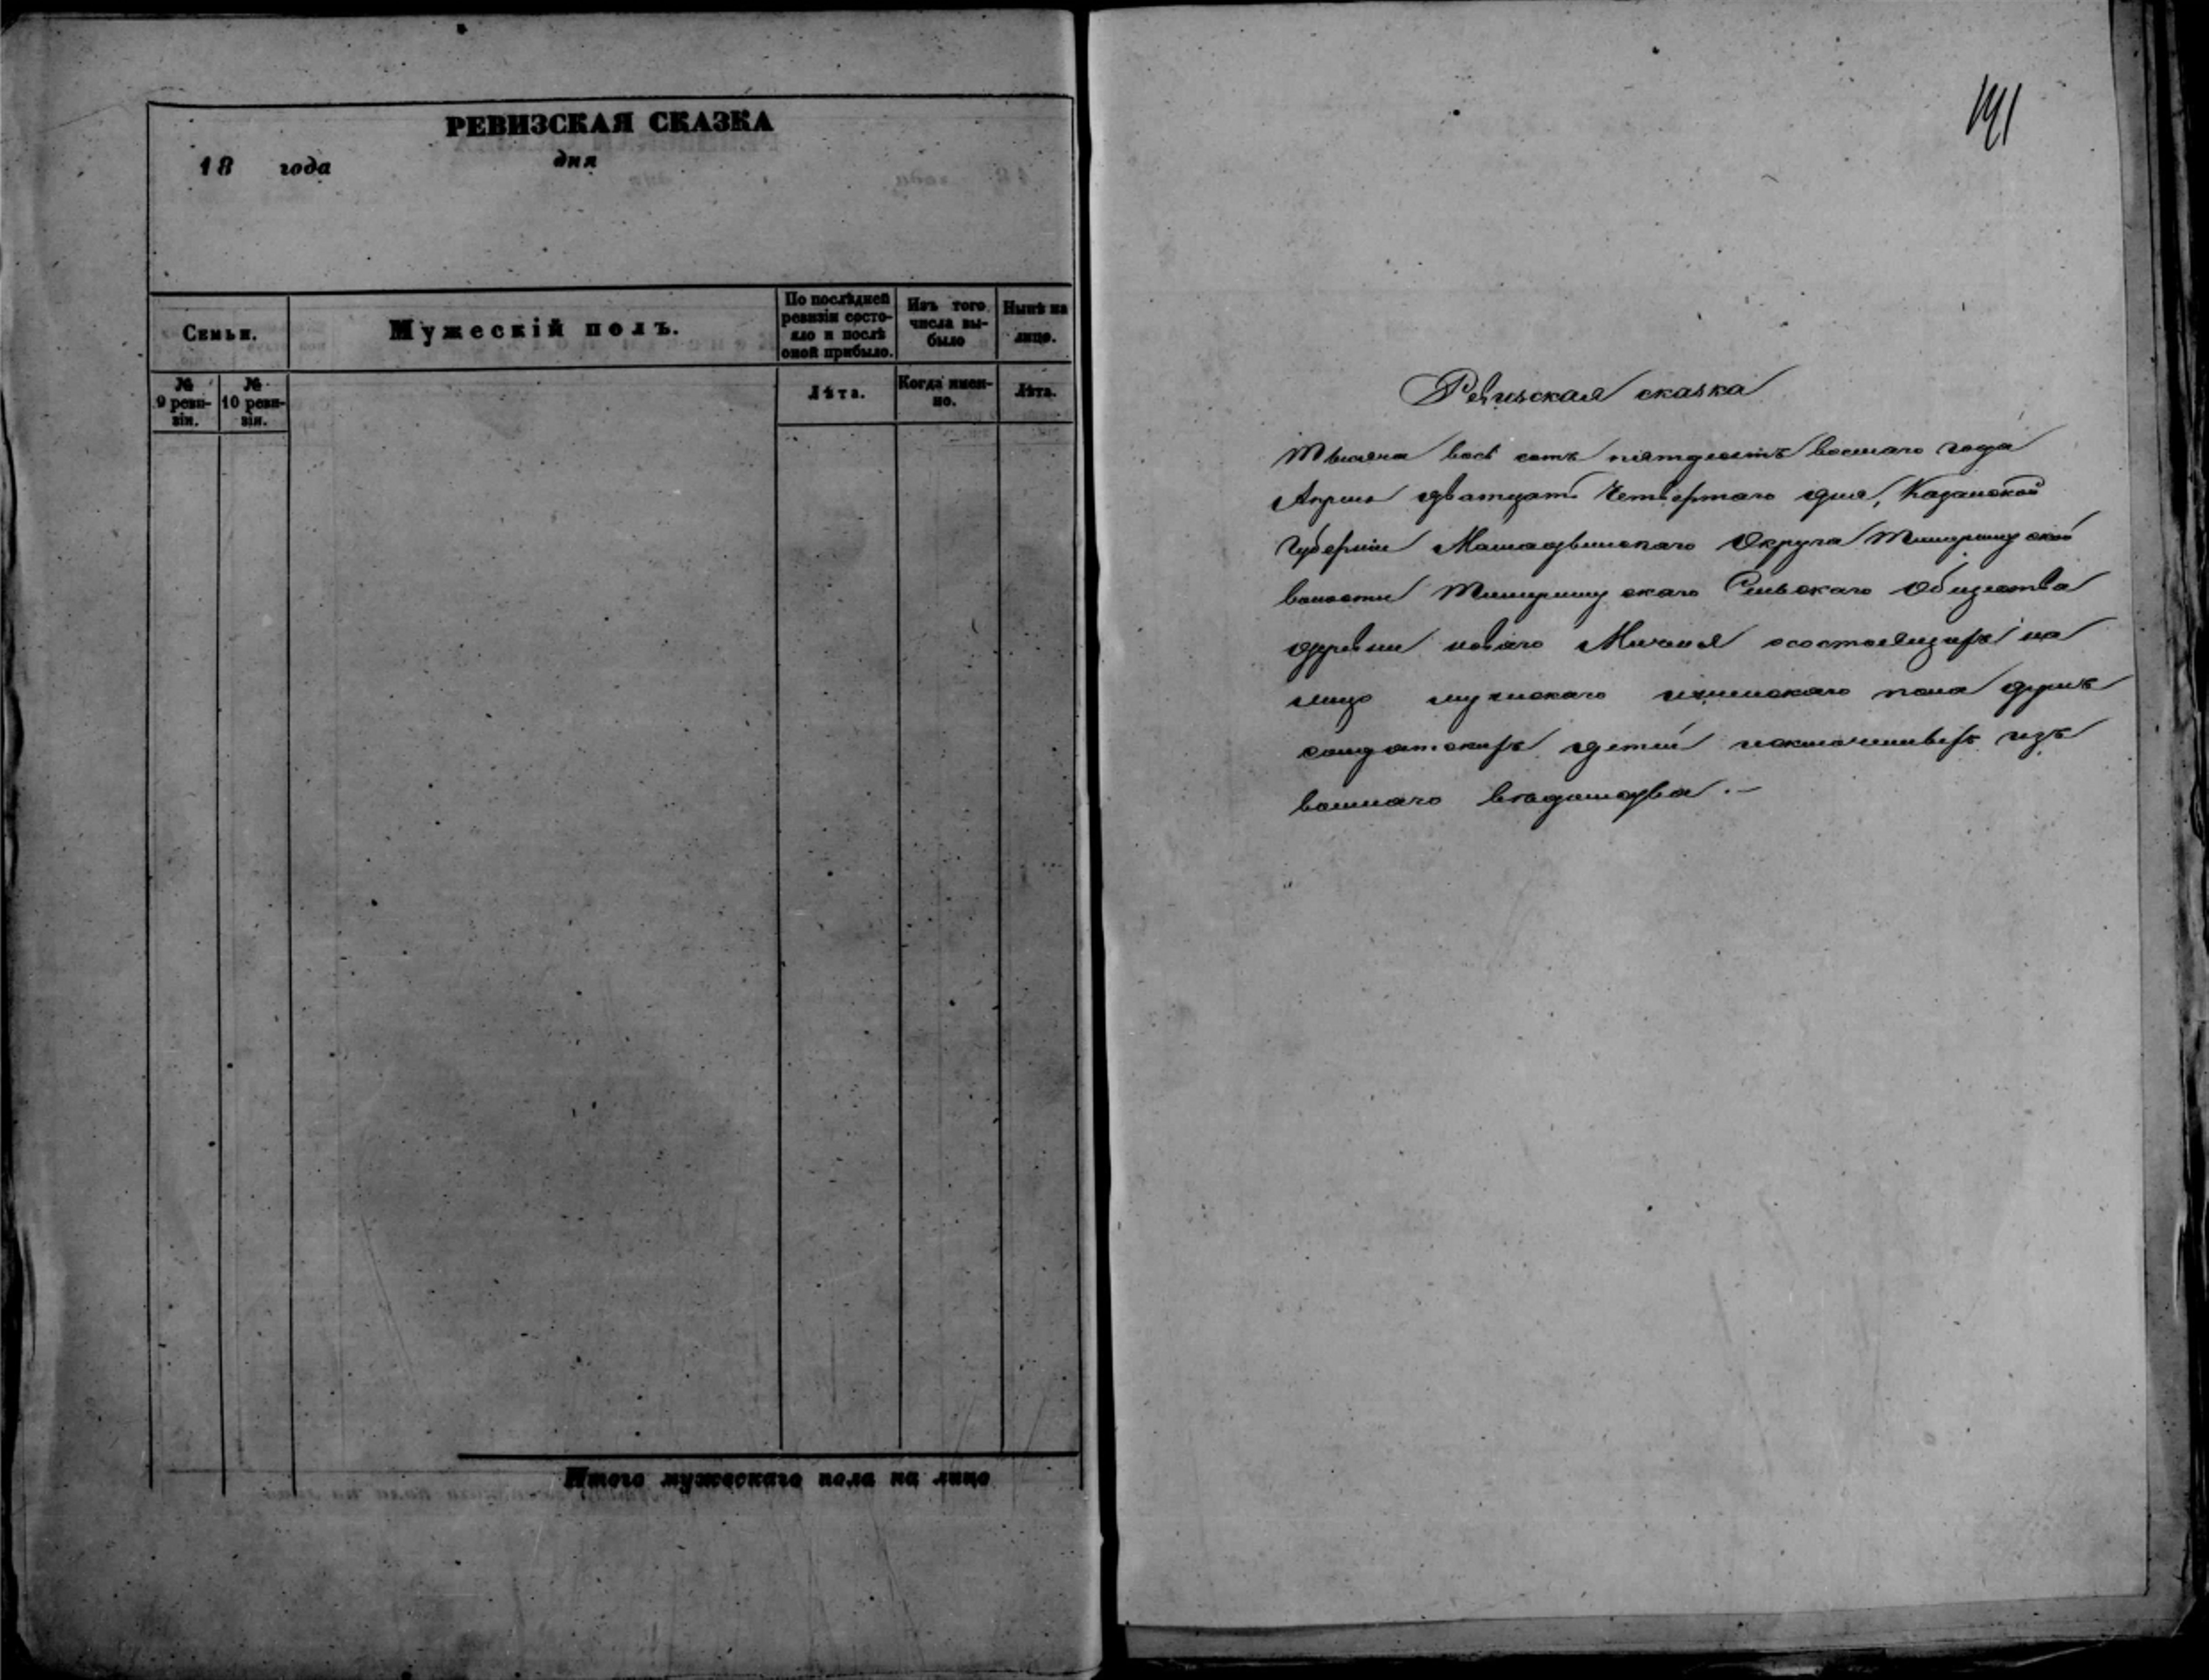 РЕВИЗСКАЯ СКАЗКА
18 года дня
Семьи.
Мужескій полъ.
По послѣдней ревизіи состояло и послѣ оной прибыло.
Изъ того числа выбыло
Нынѣ на лицо.
№ 9 ревизіи.
№ 10 ревизіи.
Лѣта.
Когда именно.
Лѣта.
Итого мужескаго пола на лицо
191
Ревизская сказка
Тысяча восѣ сотъ пятдесятъ восмаго года
Апреля дватцать Четвертаго дня, Казанской
Губерніи Мамадышскаго Округа
волости скаго Сельскаго Общества
деревни новаго осостоящихъ на
лицо мужскаго иженскаго пола душъ
солдатскихъ детей исключенныхъ изъ
военнаго